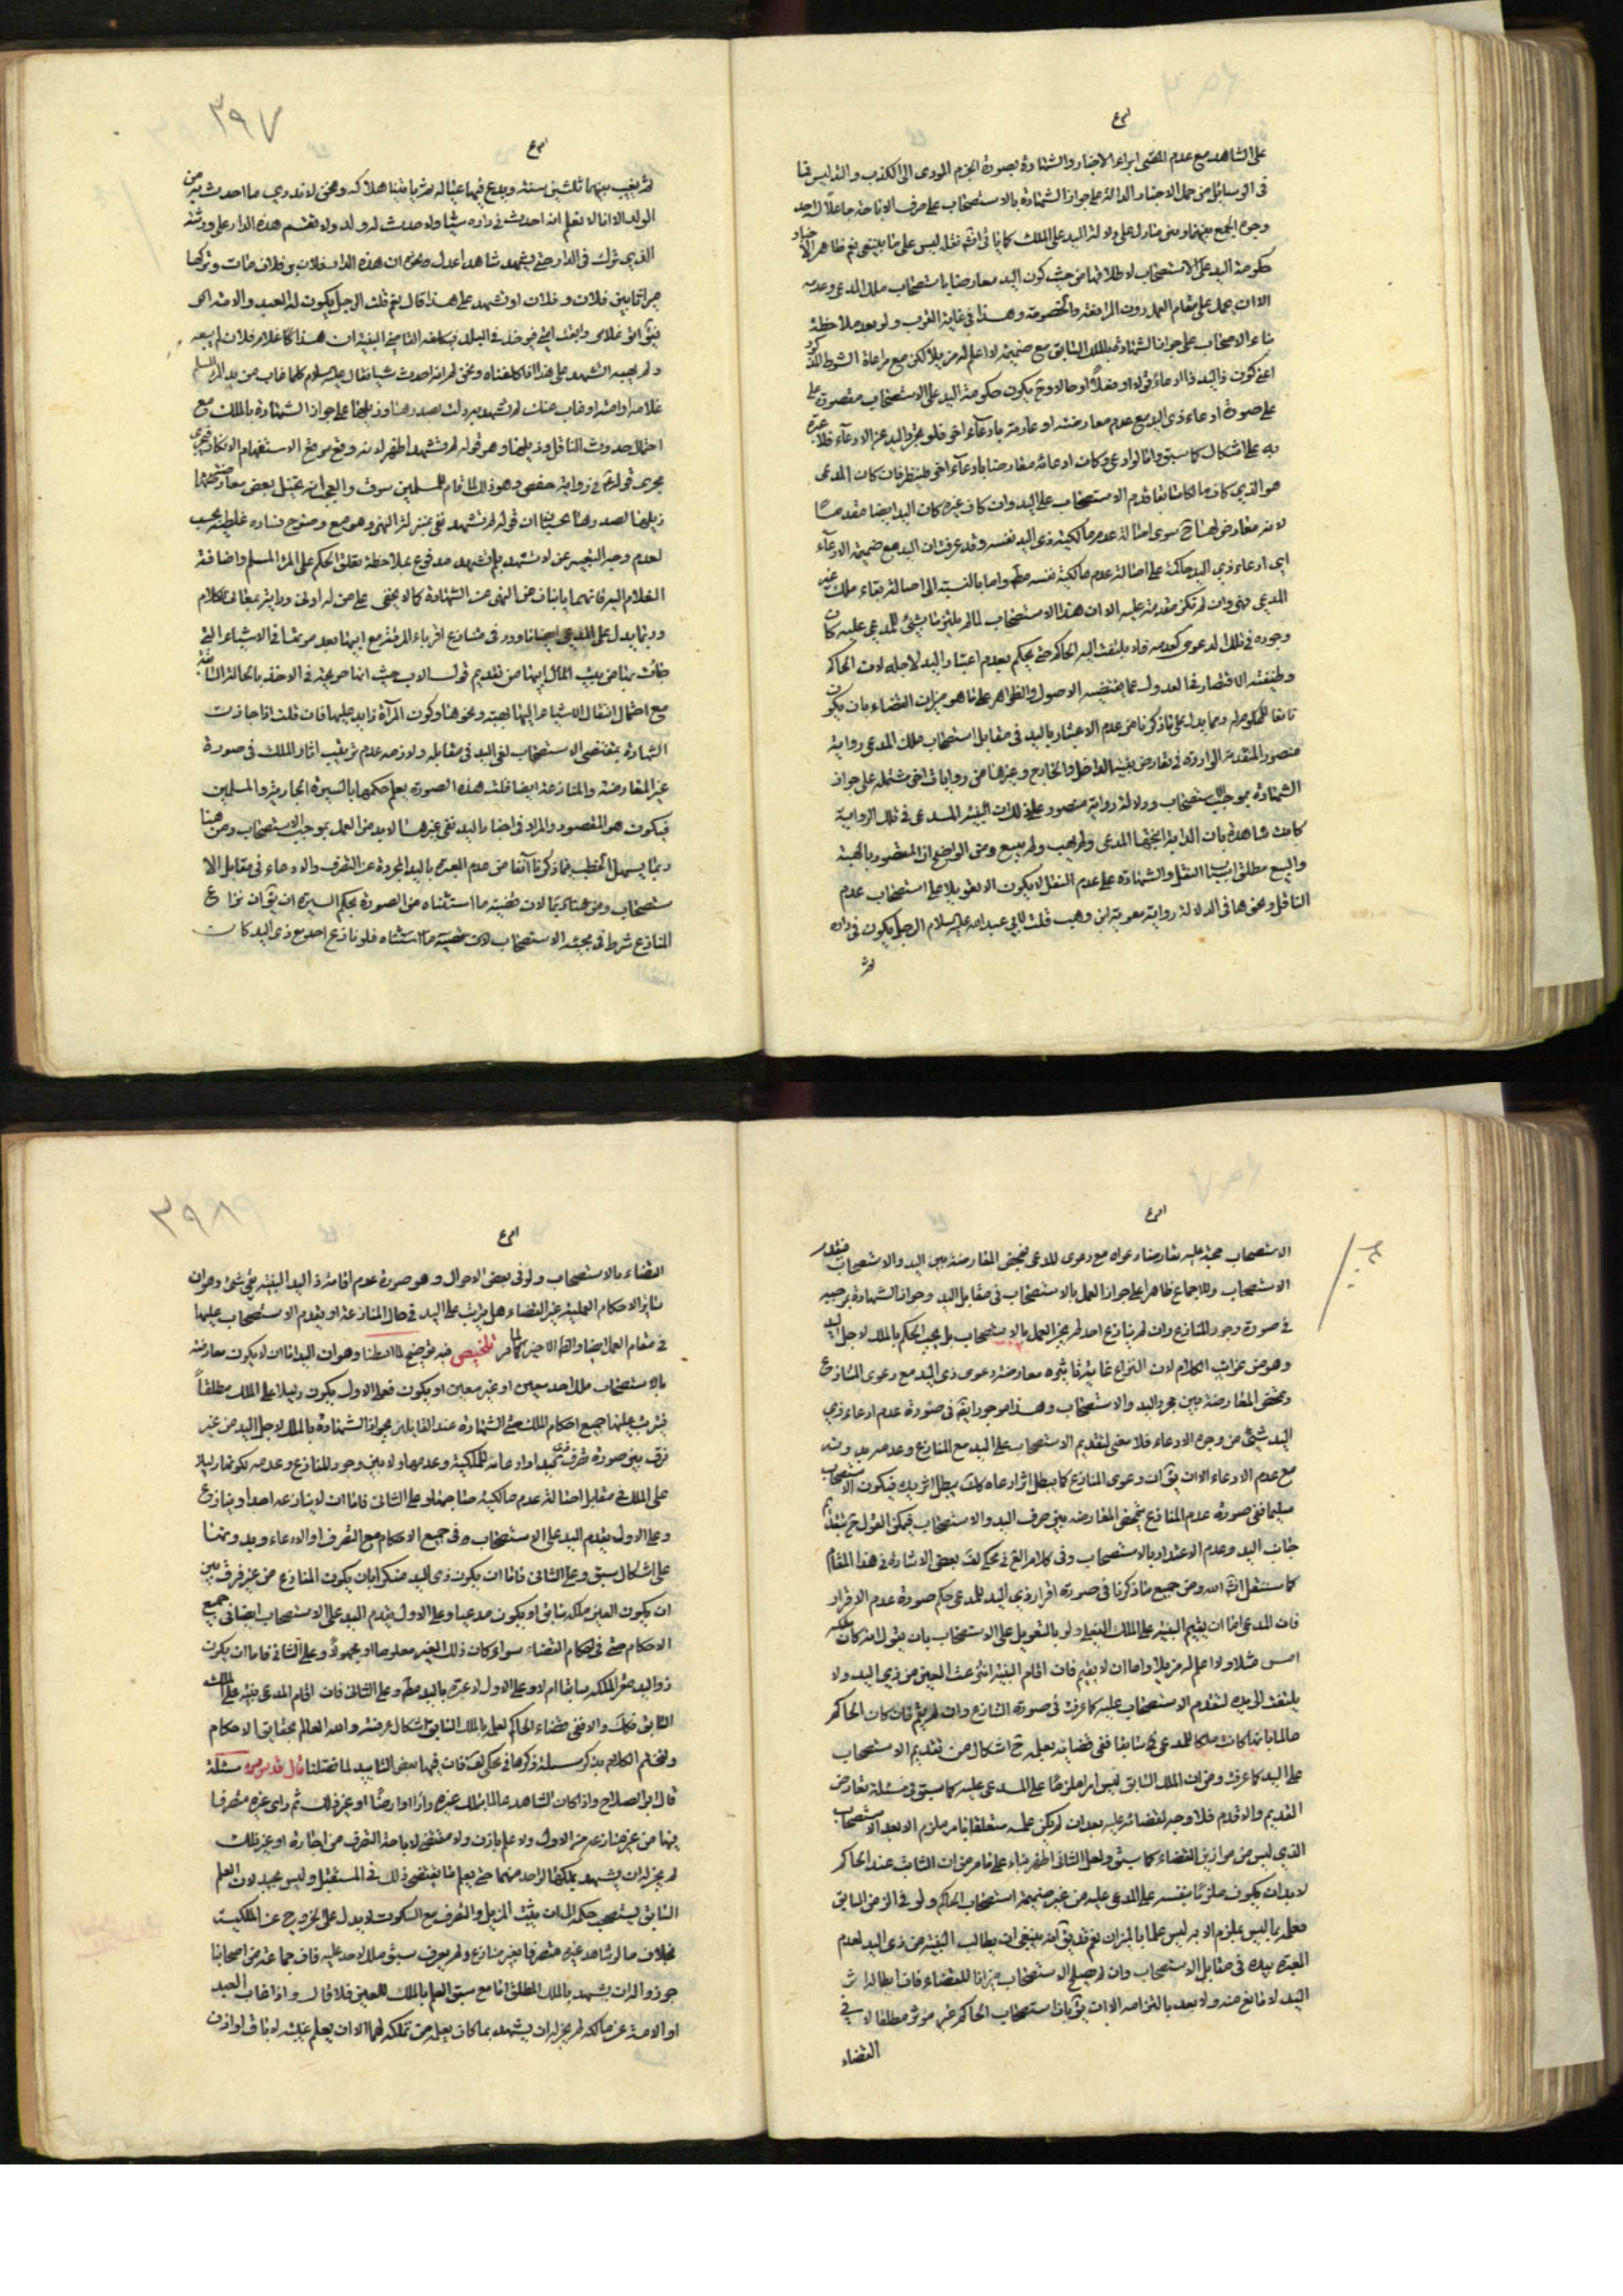 على الشاهد مع عدم المقتضى لابراء الاخبار والشهادة بصورة الجزم المودى الى الكذب والتدليس
فى الوسائل من حمل الاخبار الدالة على جواز الشهادة بالاستصحاب على صرف
وجوه الجمع بينهما
حكومة اليد على الاستصحاب لاطلاقها من حيث كون اليد معارضا باستصحاب ملك المدعى وعدمه
الا ان يحمل على مقام العمل دون المرافعة والخصومة وهذا فى غاية القرب ولو بعد ملاحظة
بناء الاصحاب على جواز الشهادة بالملك السابق مع ضميمة لا اعلم له مزيلا لكن مع مراعاة الشرط
اعنى كون ذا اليد ذا ادعاء قولا او فعلا او حالا وح يكون حكومة اليد على الاستصحاب مقصورة على
على صورة ادعاء ذى اليد مع عدم معارضته او معارضته بادعاء اخر فلو تجرد اليد عن الادعاء فلا عبرة
به على اشكال كما سبق واما لو ادعى وكان ادعائه معارضا بادعاء اخر فلينظر فان كان المدعى
هو الذى كان مالكا سابقا قدم الاستصحاب على اليد وان كان غيره كان اليد ايضا مقدما
لانه معارض لها ح سوى اصالة عدم مالكية ذى اليد نفسه وقد عرفت ان اليد مع ضميمة الادعاء
اى ادعاء ذى اليد حاكمة على اصالة عدم مالكية نفسه مط واما بالنسبة الى اصالة بقاء ملك غير
المدعى فهى وان لم تكن مقدمة عليه الا ان هذا الاستصحاب لما لم يلتزم بشئ للمدعى عليه كان
وجوده فى تلك الدعوى كعدمه فلا يلتفت اليه الحاكم حتى يحكم بعدم اعتبار اليد لاجله لان الحاكم
وظيفته الاقتصار فى العدول عما يقتضيه الاصول والظواهر على ما هو ميزان القضاء بان يكون
نافعا للمحكوم له ومما يدل على ما ذكرنا من عدم الاعتبار باليد فى مقابل استصحاب ملك المدعى رواية
منصور المتقدمة الواردة فى تعارض بينة الداخل والخارج وغيرها من روايات اخر مشتملة على جواز
الشهادة بموجب الاستصحاب ودلالة رواية منصور على ذلك ان البينة المدعى فى تلك الرواية
كانت شاهدة بان الدابة انتجها المدعى ولم يهب ولم يبع ومن الواضح ان المقصود بالهبة
والبيع مطلق اسباب النقل والشهادة على عدم النقل لا يكون الا تعويلا على استصحاب عدم
الناقل ونحوها فى الدلالة رواية معوية بن وهب قلت لابى عبد الله عليه السلام الرجل يكون فى داره
ثم
٣٩٧
ثم يغيب عنها ثلثين سنة ويدع فيها عياله ثم ياتينا هلاكه ونحن لا ندرى ما احدث فى داره ولا ما حدث له من
الولد الا انا لا نعلم انه احدث فى داره شيئا ولا حدث له ولد ولا تقسم هذه الدار على ورثته
الذى ترك فى الدار حتى يشهد شاهدا عدل ان هذه الدار لفلان بن فلان مات وتركها
ميراثا بين فلان وفلان او نشهد على هذا قال نعم قلت الرجل يكون له العبد والامة
فيقول ابق غلامى وابقت امتى فيوخذ فى البلد فيكلفه القاضى البينة ان هذا غلام فلان لم يبعه
ولم يهبه انشهد على هذا اذا كلفناه ونحن لم نعلم انه احدث شيئا فقال عليه السلام كلما غاب من يد المرء المسلم
غلامه او امته او غاب عنك لم تشهد به دلت بصدرها وذيلها على جواز الشهادة بالملك مع
احتمال حدوث الناقل وذيلها وهو قوله لم تشهد اظهر لانه وقع موقع الاستفهام الانكارى
مجرى قوله ع فى رواية حفص وهو ذلك لما قام للمسلمين سوق والعجب انه تخيل بعض معارضة
ذيلها لصدرها بحسبان ان قوله لم تشهد نفى بمنزلة النهى وهو مع وضوح فساده غلط بحسب
لعدم وجه التعبير عن لا تشهد بلم تشهد مدفوع بملاحظة تعلق الحكم على المرء المسلم واضافة
الغلام اليه فانهما ياتيان عن النهى عن الشهادة كما لا يخفى على من له ادنى دراية بمعانى الكلام
وربما يدل على المدعى ايضا ما ورد فى منازع اقرباء المرئة مع ابيها بعد موتها فى الاشياء التى
جائت بها من بيت المال ابيها من تقديم قول الاب
مع احتمال انتقال الاشياء اليها بهبة ونحوها وكون المرأة ذا يد عليها فان قلت اذا جازت
الشهادة بمقتضى الاستصحاب لغى اليد فى مقابله ولازمه عدم ترتيب اثار الملك فى صورة
غير المعارضة والمنازعة ايضا قلت هذه الصورة يعلم حكمها بالسيرة الجارية والمسلمين
فيكون هو المقصود والمراد فى اخبار اليد نفى غيرها لا بد من العمل بموجب الاستصحاب ومن هنا
ربما يسهل الخطب فيما ذكرنا آنفا من عدم العبرة باليد المجردة عن التصرف والادعاء فى مقابل الا
ستصحاب ومن هنا ربما لان قضية ما استثناه من الصورة بحكم السيرة ان يق ان نزاع
المنازع شرط فى حجية الاستصحاب لان قضية ما استثناه فلو نازع احد مع ذى اليد كان
الاستصحاب حجة عليه معارضا دعواه مع دعوى المدعى فيحض المعارضة بين اليد والاستصحاب فيقدم
الاستصحاب وللاجماع ظاهرا على جواز العمل بالاستصحاب فى مقابل اليد وجواز الشهادة بموجبه
فى صورة وجود المنازع وان لم ينازع احد لم يجز العمل بالاستصحاب بل يجب الحكم بالملك لاجل اليد
وهو من غرائب الكلام لان النزاع غاية تاثيره معارضة دعوى ذى اليد مع دعوى المنازع
وتمحض المعارضة بين مجرد اليد والاستصحاب وهذا موجود ايضا فى صورة عدم ادعاء ذى
اليد شيئ من وجوه الادعاء فلا معنى لتقديم الاستصحاب على اليد مع المنازع وعدمه بدونه
مع عدم الادعاء الا ان يق ان دعوى المنازع كما يبطل اثر ادعاه كك يبطل اثر يده فيكون الاستصحاب
سليما ففى صورة عدم المنازع يتمحض المعارضة بين صرف اليد والاستصحاب فيمكن القول ح بتقديم
جانب اليد وعدم الاعتداد بالاستصحاب وفى كلام الفخ فى محكى لف بعض الاشارة فى هذا المقام
كما ستنقل انشاء الله ومن جميع ما ذكرنا فى صورة اقرار ذى اليد للمدعى حكم صورة عدم الاقرار
فان المدعى اما ان يقيم البينة على الملك الفعلى ولو بالتعويل على الاستصحاب بان يقول انه كان ملكه
امس مثلا ولا اعلم له مزيلا واما ان لا يقيم فان اقام البينة انتزعت العين من ذى اليد ولا
يلتفت الى يده لتقدم الاستصحاب عليه كما عرفت فى صورة التنازع وان لم يقم فان كان الحاكم
عالما بانها كانت ملكا للمدعى فى سابقا ففى قضائه بعلمه ح اشكال من تقديم الاستصحاب
على اليد كما عرفت ومن ان الملك السابق ليس امرا ملزما على المدعى عليه كما سبق فى مسئلة تعارض
القديم والاقدم فلا وجه لقضائه عليه بعد ان لم يكن علمه متعلقا بامر ملزم الا بعد الاستصحاب
الذى ليس من موازين القضاء كما سبق ولعل الثانى اظهر بناء على ما مر من ان الثابت عند الحاكم
لا بد ان يكون ملزما بنفسه على المدعى عليه من غير ضميمة استصحاب الحاكم ولو فى الزمن السابق
فعلمه بما ليس بملزم الا به ليس علما بالميزان نعم قد يق انه ينبغى ان يطالب البينة من ذى اليد لعدم
العبرة بيده فى مقابل الاستصحاب وان لم يصلح الاستصحاب ميزانا للقضاء فان ابطال اثر
اليد لا مانع منه ولا بعد بالتزامه الا ان يق بان استصحاب الحاكم غير موثر مطلقا لا فى
القضاء
٣٩٨
القضاء بالاستصحاب ولو فى بعض الاحوال وهو صورة عدم اقامة ذى اليد البينة بقى شئ وهو ان
سائر الاحكام العملية غير القضاء هل يترتب على اليد فى حال المنازعة او يقدم الاستصحاب عليها
فى مقام العمل ايضا والظ الاخير لما مر تلخيص فيه توضيح لما اسلفنا وهو ان اليد اما ان لا يكون معارضة
بالاستصحاب ملك احد معين او غير معين او يكون فعلى الاول يكون دليلا على الملك مطلقا
فيترتب عليها جميع احكام الملك حتى الشهادة عند القايلين بجواز الشهادة بالملك لاجل اليد من غير
فرق بين صورة تصرف ذى اليد او ادعائه للملكية وعدمها ولا بين وجود المنازع وعدمه لكونها دليلا
على الملك فى مقابل اصالة عدم مالكية صاحبها وعلى الثانى فاما ان لا ينازعه احد او ينازع
وعلى الاول يقدم اليد على الاستصحاب فى جميع الاحكام مع التصرف او الادعاء وبدونهما
على اشكال سبق وعلى الثانى فاما ان يكون ذى اليد منكرا بان يكون المنازع من غير فرق بين
ان يكون العين ملكه سابقا او يكون مدعيا وعلى الاول يقدم اليد على الاستصحاب ايضا فى جميع
الاحكام حتى فى احكام القضاء سواء كان ذلك الغير معلوما او مجهولا وعلى الثانى فاما ان يكون
ذو اليد مقرا لملكه سابقا ام لا وعلى الاول لا عبرة باليد مط وعلى الثانى فان اقام المدعى بينة على الملك
السابق فكك والا ففى قضاء الحاكم لعلمه بالملك السابق اشكال عرفته والله العالم بحقايق الاحكام
ولنختم الكلام بذكر مسئلة ذكرها فى محكى لف فان فيها بعض التاييد لما فصلنا قال قدس سره مسئلة
قال ابو الصلاح واذا كان الشاهد عالما بتملك غيره دارا او ارضا او غير ذلك ثم راى غيره متصرفا
فيها من غير منازعة من الاول ولا علم باذن ولا مقتضى لاباحة التصرف من اجارة او غير ذلك
لم يجز له ان يشهد بتملكها لواحد منهما حتى يعلم ما يقتضى ذلك فى المستقبل وليس بجيد لان العلم
السابق يستصحب حكمه الى ان يثبت المزيل والتصرف مع السكوت لا يدل على الخروج عن الملكية
بخلاف ما لو شاهد غيره متصرفا بغير منازع ولم يعرف سبق ملك لاحد عليه فان جماعة من اصحابنا
جوزوا له ان يشهد بالملك المطلق اما مع سبق العلم بالملك للغير فلا قال واذا غاب العبد
او الامة عن مالكه لم يجز له ان يشهد بما كان يعلمه من تملكه لهما الا ان يعلم غيبته لاباق او اذن